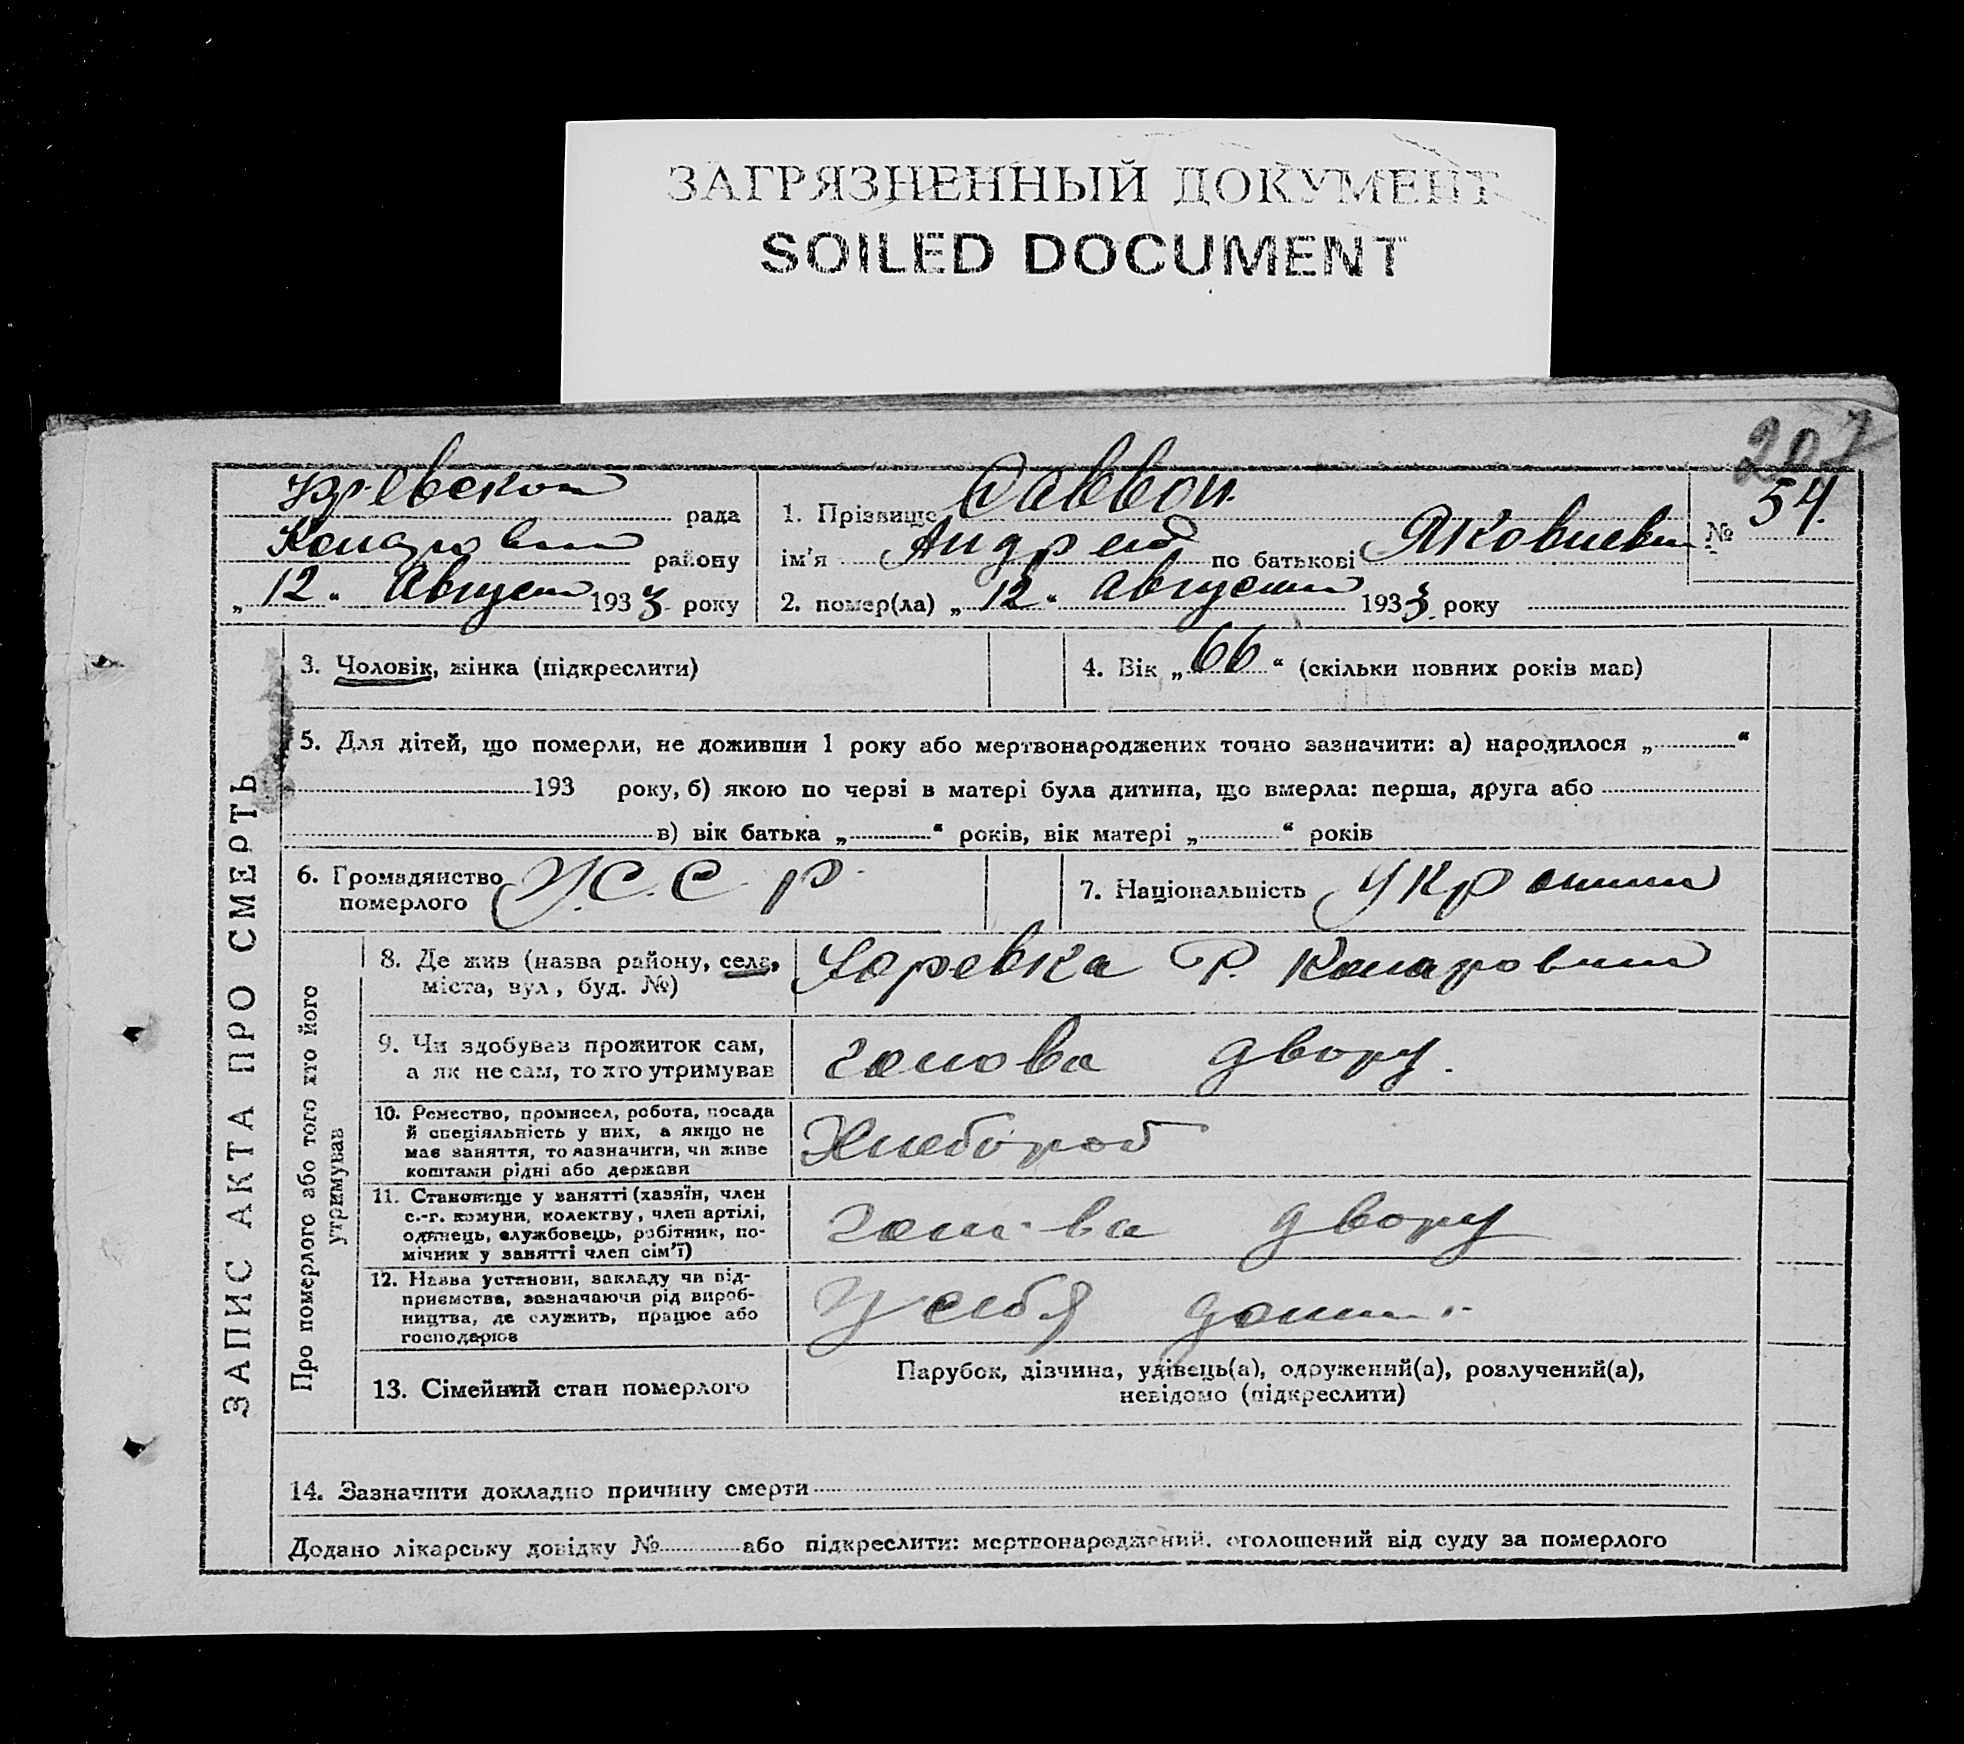 ЗАГРЯЗНЕННЫЙ ДОКУМЕНТ
SOILED DOCUMENT
207
рада
району
„ 12 “ Август 1933 року
1. Прізвище
ім'я Андрей по батькові Яковлев
2. помер(ла) „ 12 “ Августа 1933 року
№ 54.
ЗАПИС АКТА ПРО СМЕРТЬ
3. Чоловік, жінка (підкреслити)
4. Вік „ 66 “ (скільки повних років мав)
5. Для дітей, що померли, не доживши 1 року або мертвонароджених точно зазначити: а) народилося „ “
193 року, б) якою по черзі в матері була дитина, що вмерла: перша, друга або
в) вік батька „ “ років, вік матері „ “ років
6. Громадянство
померлого У.С.С.Р.
7. Національність
Про померлого або того хто його
утримував
8. Де жив (назва району, села,
міста, вул, буд. №)
Юревка Р.
9. Чи здобував прожиток сам,
а як не сам, то хто утримував
голова двору.
10. Ремество, промисел, робота, посада
й спеціяльність у них, а якщо не
має заняття, то зазначити, чи живе
коштами рідні або держави
Хлебороб
11. Становище у занятті (хазяїн, член
с.-г. комуни, колективу, член артілі,
одинець, службовець, робітник, по-
мічник у занятті член сім'ї)
голова двору
12. Назва установи, закладу чи під-
приємства, зазначаючи рід вироб-
ництва, де служить, працює або
господарює
у себя дома
13. Сімейний стан померлого
Парубок, дівчина, удівець(а), одружений(а), розлучений(а),
невідомо (підкреслити)
14. Зазначити докладно причину смерти
Додано лікарську довідку № або підкреслити: мертвонароджений. оголошений від суду за померлого